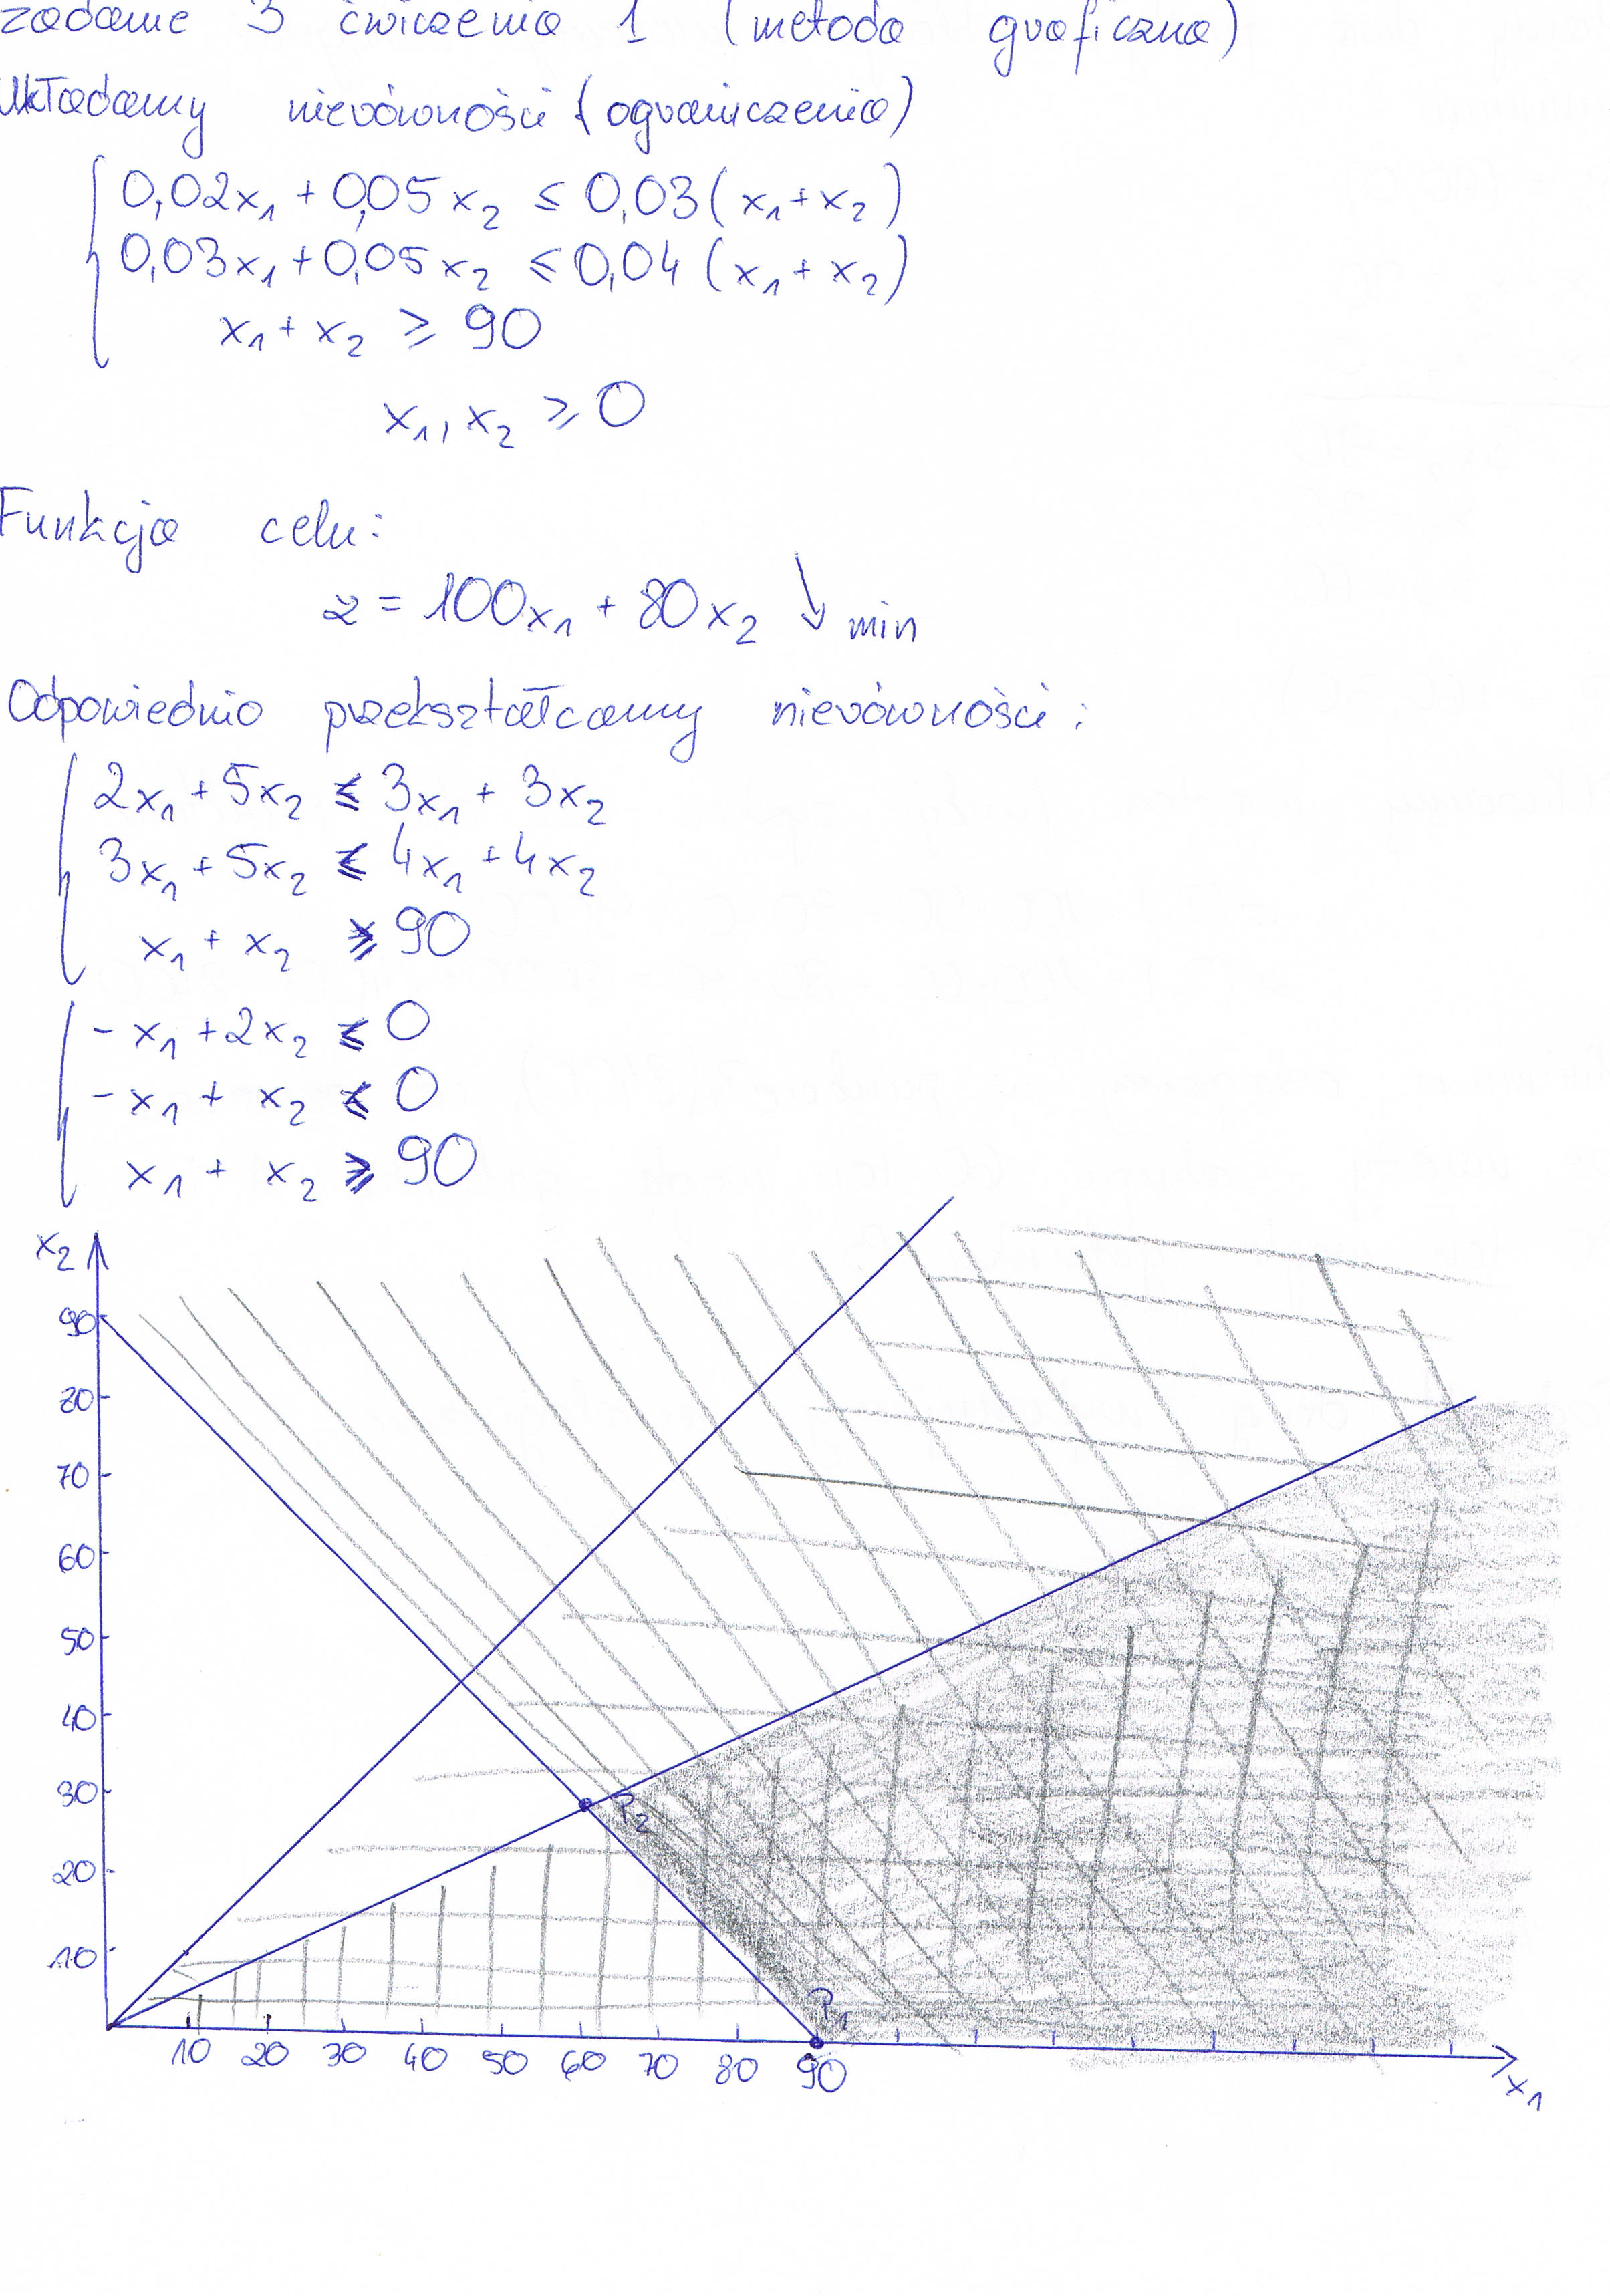 zadanie 3 ćwiczenia 1 (metoda graficzna)
Układamy nierówności (ograniczenia)
0,02x₁ + 0,05x₂ ≤ 0,03(x₁+x₂)
0,03x₁ + 0,05x₂ ≤ 0,04(x₁+x₂)
x₁ + x₂ ≥ 90
x₁, x₂ ≥ 0
Funkcja celu:
z = 100x₁ + 80x₂ ↓ min
Odpowiednio przekształcamy nierówności:
2x₁ + 5x₂ ≤ 3x₁ + 3x₂
3x₁ + 5x₂ ≤ 4x₁ + 4x₂
x₁ + x₂ ≥ 90
- x₁ + 2x₂ ≤ 0
- x₁ + x₂ ≤ 0
x₁ + x₂ ≥ 90
x₂
90
80
70
60
50
40
30
P₂
20
10
P₁
10 20 30 40 50 60 70 80 90
x₁